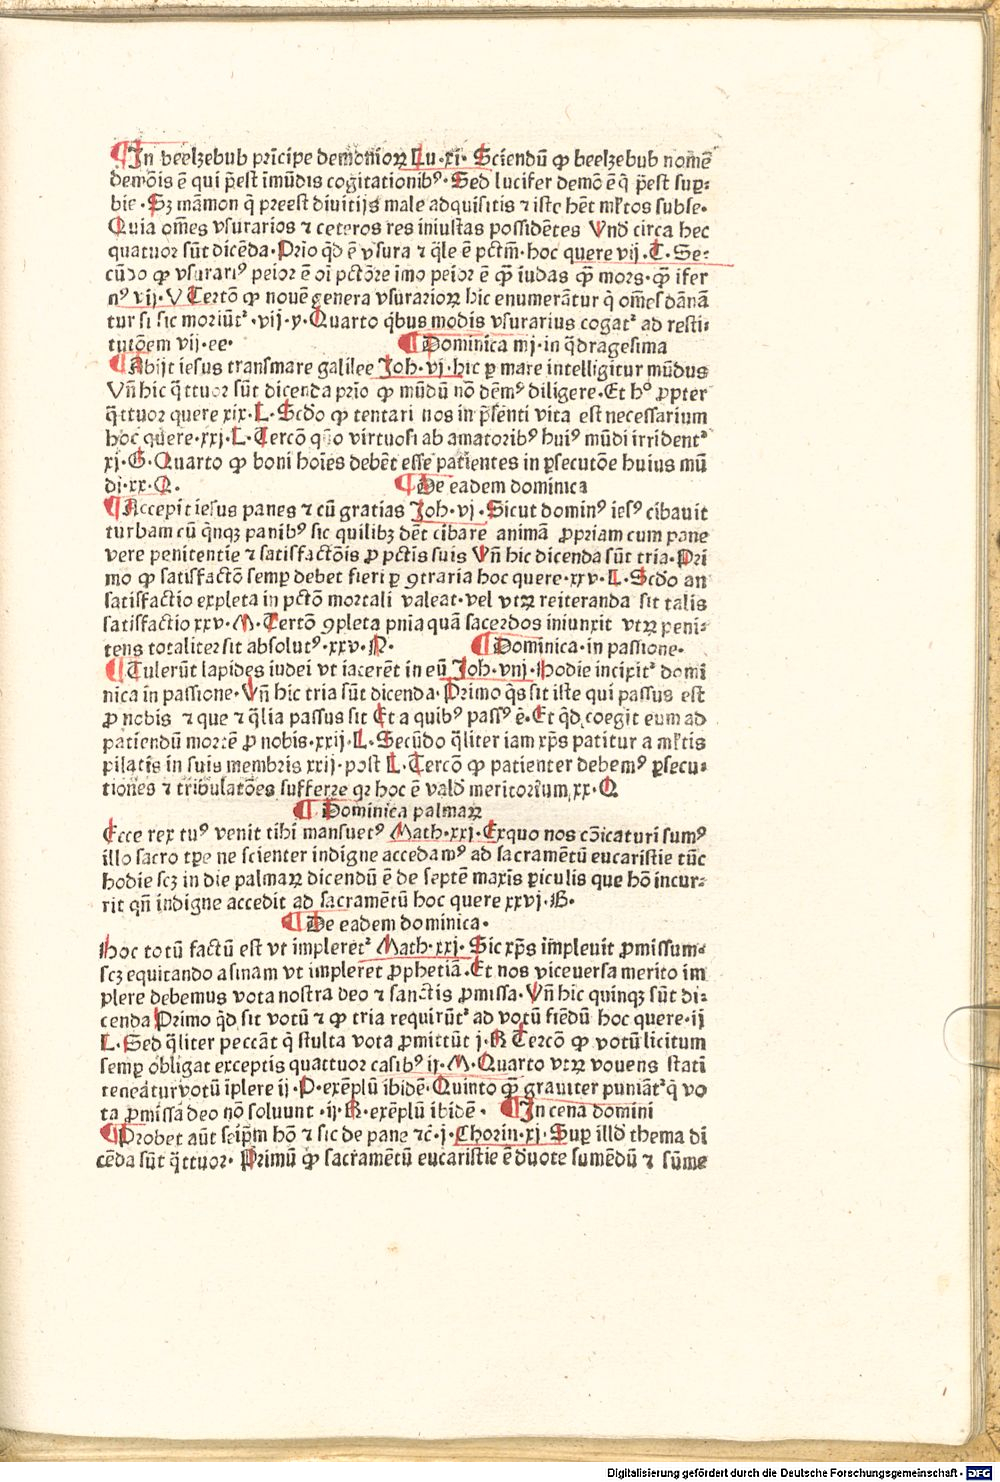 ¶ In beelzebub prīcipe demonioꝝ Lu·xi· Sciendū ꝙ beelzebub nomē
demōis ē qui p̄est īmūdis cogitationibꝰ· Sed lucifer demō ē q̄ p̄est suꝑ⸗
bie· Sꝫ māmon q̄ preest diuitijs male adquisitis ⁊ iste hēt ml̄tos subse·
Quia om̄es vsurarios ⁊ ceteros res iniustas possidētes Vnd̄ circa hec
quatuor sūt dicēda· Prīo qd̄ ē vsura ⁊ q̄le ē pctm̄· hoc quere vij· T· Se⸗
cūdo ꝙ vsurariꝰ peior ē oī pctōre imo peior ē ꝙ̄ iudas ꝙ̄ mors· ꝙ̄ ifer
nꝰ vij· V Tertō ꝙ nouē genera vsurarioꝝ hic enumerātur q̄ om̄es dānā
tur si sic moriūt᷑ ·vij·y· Quarto q̄bus modis vsurarius cogat᷑ ad resti⸗
tutōem vij·ee·
¶ Dominica iiij·in q̄dragesima
¶ Abijt iesus transmare galilee Joh·vj· hic ꝑ mare intelligitur mūdus
Vn̄ hic q̄ttuor sūt dicenda prīo ꝙ mūdū nō dēmꝰ diligere· Et hᵒ ꝓpter
q̄ttuor quere xix·L· Scd̄o ꝙ tentari nos in p̄senti vita est necessarium
hoc quere·xxj·L· Tercō quō virtuosi ab amatoribꝰ huiꝰ mūdi irrident᷑
xj·G· Quarto ꝙ boni hoīes debēt esse patientes in ꝑsecutōe huius mū
di·xx·Q·
¶ De eadem dominica
¶ Accepit iesus panes ⁊ cū gratias Joh·vj· Sicut dominꝰ iesꝰ cibauit
turbam cū q̄nqꝫ panibꝰ sic quilibꝫ dēt cibare animā ꝓpriam cum pane
vere penitentie ⁊ satisfactōis ꝓ pctis suis Vn̄ hic dicenda sūt tria· Pri
mo ꝙ satisfactō semꝑ debet fieri ꝑ ꝯtraria hoc quere·xxv·L· Scd̄o an
satisfactio expleta in pctō mortali valeat· vel vtꝝ reiteranda sit talis
satisfactio xxv·M· Tertō ꝯpleta pnīa quā sacerdos iniunxit vtꝝ peni⸗
tens totaliter sit absolutꝰ·xxv·N·
¶ Dominica·in passione·
¶ Tulerūt lapides iudei vt iacerēt in eū Joh·viij· Hodie incipit᷑ domi
nica in passione· Vn̄ hic tria sūt dicenda· Primo q̄s sit iste qui passus est
ꝓ nobis ⁊ que ⁊ q̄lia passus sit Et a quibꝰ passꝰ ē· Et qd̄ coegit eum ad
patiendū mortē ꝓ nobis·xxij·L· Secūdo q̄liter iam xp̄s patitur a ml̄tis
pilatis in suis membris xxij·post L· Tercō ꝙ patienter debemꝰ ꝑsecu⸗
tiones ⁊ tribulatōes sufferre qꝛ hoc ē vald̄ meritorium xx·Q
¶ Dominica palmaꝝ
Ecce rex tuꝰ venit tibi mansuetꝰ Math·xxj· Exquo nos cōicaturi sumꝰ
illo sacro tꝑe ne scienter indigne accedamꝰ ad sacramētū eucaristie tūc
hodie scꝫ in die palmaꝝ dicendū ē de septē maxīs ꝑiculis que hō incur⸗
rit qn̄ indigne accedit ad sacramētū hoc quere xxvj·B·
¶ De eadem dominica·
Hoc totū factū est vt impleret᷑ Math·xxj· Sic xp̄s impleuit ꝓmissum⸗
scꝫ equitando asinam vt impleret ꝓphetiā· Et nos viceuersa merito im
plere debemus vota nostra deo ⁊ sanctis ꝓmissa· Vn̄ hic quinqꝫ sūt di⸗
cenda Primo qd̄ sit votū ⁊ ꝙ tria requirūt᷑ ad votū fiēdū hoc quere·ij
L· Sed q̄liter peccāt q̄ stulta vota ꝓmittūt j·K Tercō ꝙ votū licitum
semꝑ obligat exceptis quattuor casibꝰ ij·M· Quarto vtꝝ vouens stati
teneātur votū īplere ij·P· exēplū ibidē· Quinto ꝙ̄ grauiter puniāt᷑ q̄ vo
ta ꝓmissa deo nō soluunt ·ij·R· exēplū ibidē·
¶ In cena domini
¶ Probet aūt seip̄m hō ⁊ sic de pane ⁊c̄·j· Chorin·xj· Suꝑ illd̄ thema di
cēda sūt q̄ttuor· Primū ꝙ sacramētū eucaristie ē dʼuote sumēdū ⁊ sūme
Digitalisierung gefördert durch die Deutsche Forschungsgemeinschaft - DFG